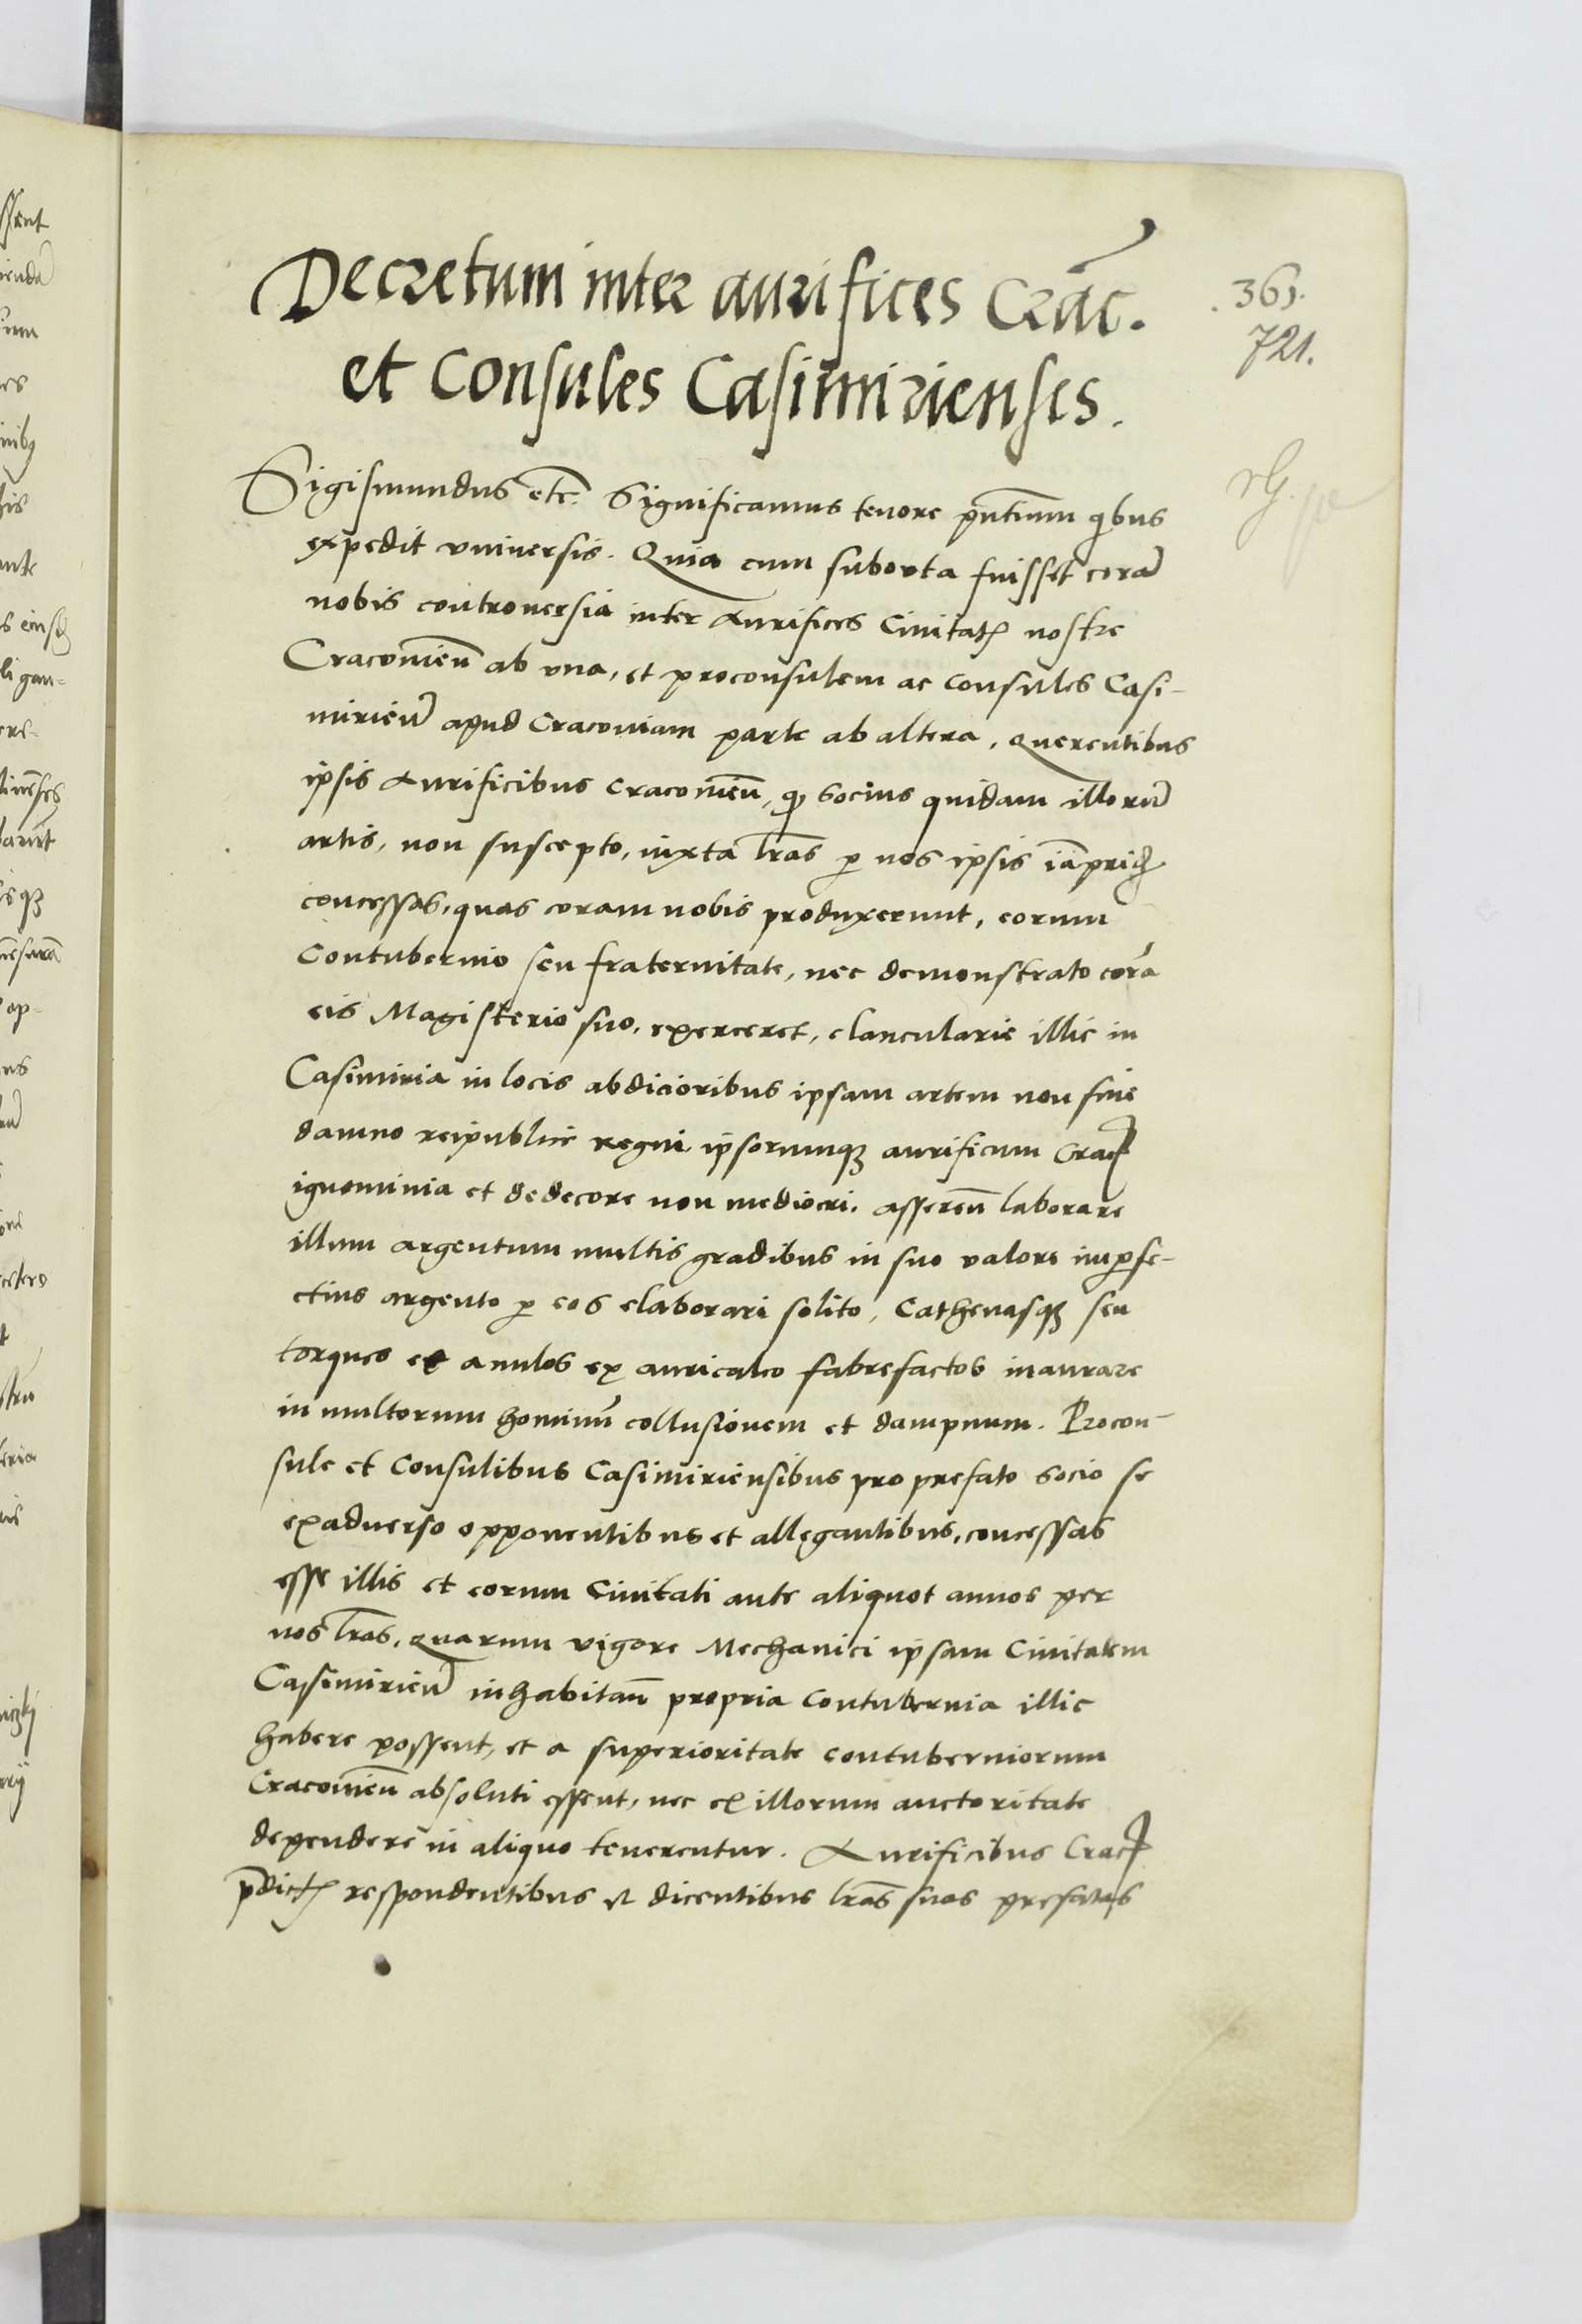 Decretum inter aurifices Crac̃.
et Consules Casimirienses.
.361.
721.
Sigismundus etc̃. Significamus tenore pñtium qibus
expedit vniuersis. Quia cum suborta fuisset corã
nobis controuersia inter Aurifices Ciuitatꝭ nostre
Cracouieñ ab vna, et proconsulem ac Consules Casi-
mirieñ apud Cracouiam parte ab altera, Querentibus
ipsis Aurificibus Cracouieñ, qꝫ Socius quidam illorũ
artis, non suscepto, iuxta lr̃as ꝑ nos ipsis iãpridẽ
concessas, quas coram nobis produxerunt, eorum
Contubernio seu fraternitate, nec demonstrato corã
eis Magisterio suo, exerceret, clancularie illic in
Casimiria in locis abdicioribus ipsam artem non sine
damno reipublice regni ipsorumqꝫ aurificum Cracꝭ
ignominia et dedecore non mediocri. assereñ laborare
illum argentum multis gradibus in suo valore imꝑfe-
ctius argento ꝑ eos elaborari solito, Cathenasqꝫ seu
torques et anulos ex auricalco fabrefactos inaurare
in multorum hominũ collusionem et dampnum. Procon-
sule et Consulibus Casimiriensibus pro prefato Socio se
exaduerso opponentibus et allegantibus, concessas
esse illis et eorum Ciuitati ante aliquot annos per
nos lr̃as, Quarum vigore Mechanici ipsam Ciuitatem
Casimirieñ inhabitañ propria Contubernia illic
habere possent, et a superioritate contuberniorum
Cracouieñ absoluti essent, nec ex illorum auctoritate
dependere in aliquo tenerentur. Aurificibus Cracꝭ
p̃dictꝭ respondentibus et dicentibus lr̃as suas prefatas